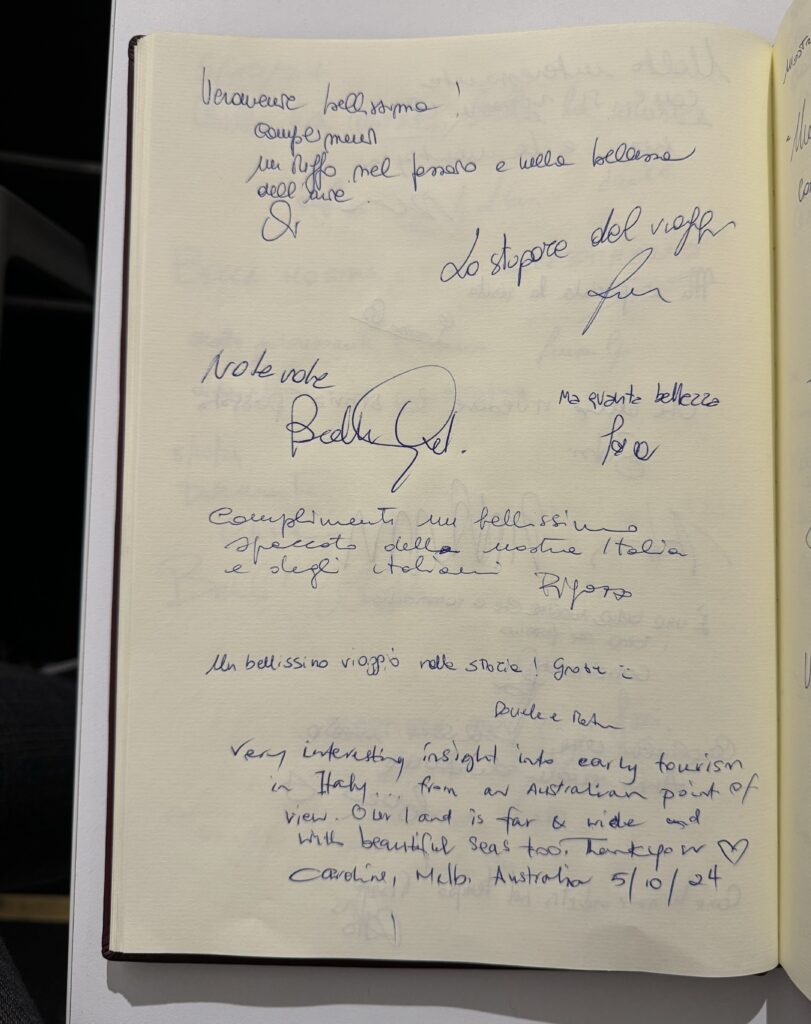 Veramente bellissima!
Complimenti
un tuffo nel passato e nella bellezza
dell'arte.
Lo stupore del viaggio
Notevole
Ma quanta bellezza
Sara
Complimenti un bellissimo
spaccato della nostra Italia
e degli italiani
Un bellissimo viaggio nella storia! Grazie
Very interesting insight into early tourism
in Italy... from an Australian point of
view. Our land is far & wide and
with beautiful seas too. Thankyou ♡
Caroline, Melb. Australia 5/10/24